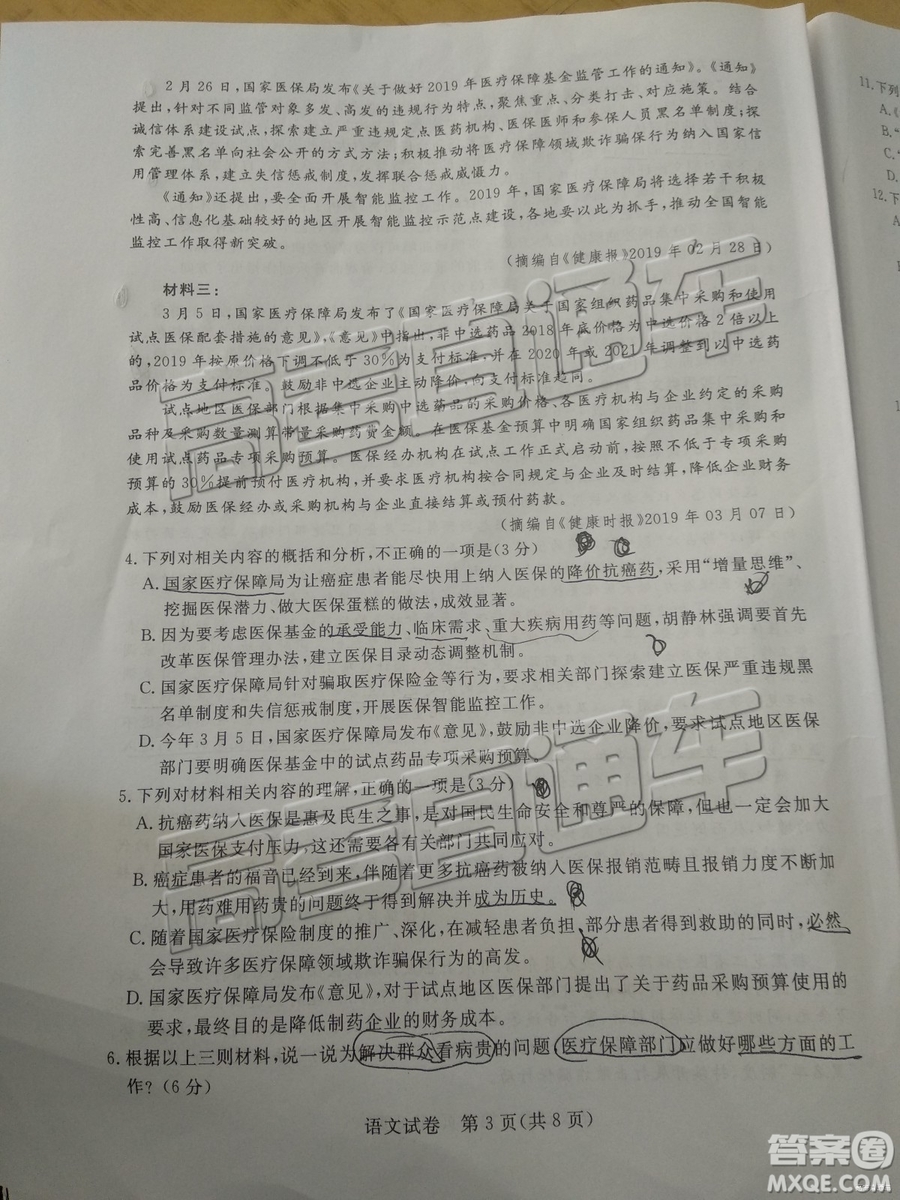 2月26日,国家医保局发布《关于做好2019年医疗保障基金监管工作的通知》。《通知》
提出,针对不同监管对象多发、高发的违规行为特点,聚焦重点、分类打击、对应施策。结合
诚信体系建设试点,探索建立严重违规定点医药机构、医保医师和参保人员黑名单制度;探
索完善黑名单向社会公开的方式方法;积极推动将医疗保障领域欺诈骗保行为纳入国家信
用管理体系,建立失信惩戒制度,发挥联合惩戒威慑力。
《通知》还提出,要全面开展智能监控工作。2019年,国家医疗保障局将选择若干积极
性高、信息化基础较好的地区开展智能监控示范点建设,各地要以此为抓手,推动全国智能
监控工作取得新突破。
(摘编自《健康报》2019年02月28日)
材料三:
3月5日,国家医疗保障局发布了《国家医疗保障局关于国家组织药品集中采购和使用
试点医保配套措施的意见》,《意见》中指出,非中选药品2018年底价格为中选价格2倍以上
的,2019年按原价格下调不低于30%为支付标准,并在2020年或2021年调整到以中选药
品价格为支付标准。鼓励非中选企业主动降价,向支付标准趋同。
试点地区医保部门根据集中采购中选药品的采购价格、各医疗机构与企业约定的采购
品种及采购数量测算带量采购药费金额。在医保基金预算中明确国家组织药品集中采购和
使用试点药品专项采购预算。医保经办机构在试点工作正式启动前,按照不低于专项采购
预算的30%提前预付医疗机构,并要求医疗机构按合同规定与企业及时结算,降低企业财务
成本,鼓励医保经办或采购机构与企业直接结算或预付药款。
(摘编自《健康时报》2019年03月07日)
4.下列对相关内容的概括和分析,不正确的一项是(3分)
A.国家医疗保障局为让癌症患者能尽快用上纳入医保的降价抗癌药,采用“增量思维”、
挖掘医保潜力、做大医保蛋糕的做法,成效显著。
B.因为要考虑医保基金的承受能力、临床需求、重大疾病用药等问题,胡静林强调要首先
改革医保管理办法,建立医保目录动态调整机制。
C.国家医疗保障局针对骗取医疗保险金等行为,要求相关部门探索建立医保严重违规黑
名单制度和失信惩戒制度,开展医保智能监控工作。
D.今年3月5日,国家医疗保障局发布《意见》,鼓励非中选企业降价,要求试点地区医保
部门要明确医保基金中的试点药品专项采购预算。
5.下列对材料相关内容的理解,正确的一项是(3分)
A.抗癌药纳入医保是惠及民生之事,是对国民生命安全和尊严的保障,但也一定会加大
国家医保支付压力,这还需要各有关部门共同应对。
B.癌症患者的福音已经到来,伴随着更多抗癌药被纳入医保报销范畴且报销力度不断加
大,用药难用药贵的问题终于得到解决并成为历史。
C.随着国家医疗保险制度的推广、深化,在减轻患者负担、部分患者得到救助的同时,必然
会导致许多医疗保障领域欺诈骗保行为的高发。
D.国家医疗保障局发布《意见》,对于试点地区医保部门提出了关于药品采购预算使用的
要求,最终目的是降低制药企业的财务成本。
6.根据以上三则材料,说一说为解决群众看病贵的问题医疗保障部门应做好哪些方面的工
作?(6分)
语文试卷 第3页(共8页)
11.下列
A.《
B.“
C.“
D.
12.下
A
高考直通车
高考直通车
答案圈
MXQE.COM